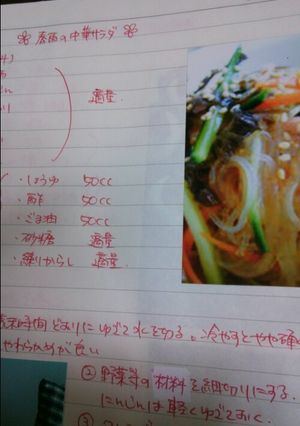 春雨の中華サラダ
適量
・しょうゆ 50cc
・酢 50cc
・ごま油 50cc
・砂糖 適量
・練りからし 適量
時間どおりにゆでて水をきる。冷やすとやや
やわらかめが良い
② 野菜等の材料を細切りにする。
にんじんは軽くゆでておく。